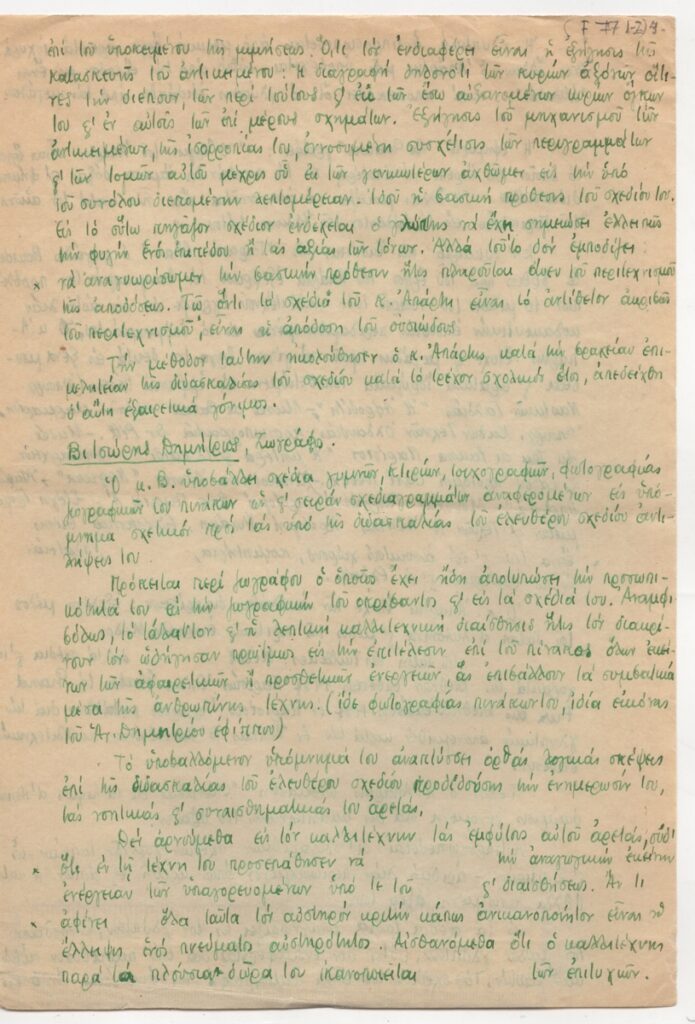 (F 77 1-2) 4.
ἐπί τοῦ ὑποκειμένου τῆς μιμήσεως. Ὅ,τι τόν ἐνδιαφέρει εἶναι ἡ ἐξήγησις τῆς
κατασκευῆς τοῦ ἀντικειμένου: Ἡ διαγραφή δηλονότι τῶν κυρίων ἀξόνων οἵτι-
νες τήν διέπουν, τῶν περί τούτους ϗ ἐκ τῶν ἔσω αὐξανομένων κυρίων ὄγκων
του ϗ ἐν αὐτοῖς τῶν ἐπί μέρους σχημάτων. Ἐξήγησις τοῦ μηχανισμοῦ τῶν
ἀντικειμένων, τῆς ἰσορροπίας του, ἐννοουμένη συσχέτισις τῶν περιγραμμάτων
ϗ τῶν τομῶν αὐτοῦ μέχρις οὗ ἐκ τῶν γενικωτέρων ἀχθῶμεν εἰς τήν ὑπό
τοῦ συνόλου διεπομένην λεπτομέρειαν. Ἰδού ἡ βασική πρόθεσις τοῦ σχεδίου του.
Εἰς τό οὕτω πηγάζον σχέδιον ἐνδέχεται ὁ γλύπτης νά ἔχῃ σημειώσει ἐλλειπῶς
τήν φυγήν ἑνός ἐπιπέδου ἤ τάς ἀξίας τῶν τόνων. Ἀλλά τοῦτο δέν ἐμποδίζει
νά ἀναγνωρίσωμεν τήν βασικήν πρόθεσιν ἥτις πληροῦται ἄνευ τοῦ περιτεχνισμοῦ
τῆς ἀποδόσεως. Τῷ ὄντι τό σχέδιο τοῦ κ. Ἀπάρτη εἶναι τό ἀντίθετον ἀκριβῶς
τοῦ περιτεχνισμοῦ, εἶναι ἡ ἀπόδοση τοῦ οὐσιώδους.
Τήν μέθοδον ταύτην ἠκολούθησεν ὁ κ. Ἀπάρτης κατά τήν βραχεῖαν ἐπι-
μελητείαν τῆς διδασκαλίας τοῦ σχεδίου κατά τό τρέχον σχολικόν ἔτος, ἀπεδείχθη
δ' αὕτη ἐξαιρετικά γόνιμος.
Βιτσώρης Δημήτριος, ζωγράφος.
Ὁ κ. Β. ὑποβάλλει σχέδια γυμνῶν, κτιρίων, τοιχογραφιῶν, φωτογραφίας
ζωγραφικῶν του πινάκων ὡς ϗ σειράν σχεδιαγραμμάτων ἀναφερομένων εἰς ὑπό-
μνημα σχετικόν πρός τάς ὑπό τῆς διδασκαλίας τοῦ ἐλευθέρου σχεδίου ἀντι-
λήψεις του.
Πρόκειται περί ζωγράφου ὁ ὁποῖος ἔχει ἤδη ἀποτυπώσει τήν προσωπι-
κότητά του εἰς τήν ζωγραφικήν τοῦ ὀκρίβαντος ϗ εἰς τά σχέδιά του. Ἀναμφι-
βόλως, τό τάλαντον ϗ ἡ λεπτική καλλιτεχνική διαίσθησις ἥτις τόν διακρί-
νουν τόν ὡδήγησαν πρωΐμως εἰς τήν ἐπιτέλεσιν ἐπί τοῦ πίνακος ὅλων ἐκεί-
νων τῶν ἀφαιρετικῶν ἤ προσθετικῶν ἐνεργειῶν, ἅς ἐπιβάλλουν τά συμβατικά
μέσα τῆς ἀνθρωπίνης τέχνης. (ἰδέ φωτογραφίας πινάκων του, ἰδίᾳ εἰκόνος
τοῦ Ἁγ. Δημητρίου ἐφίππου)
Τό ὑποβαλλόμενον ὑπόμνημά του ἀναπτύσσει ὀρθάς λογικάς σκέψεις
ἐπί τῆς διδασκαλίας τοῦ ἐλευθέρου σχεδίου προδιδούσης τήν ἐνημέρωσίν του,
τάς νοητικάς ϗ συναισθηματικάς του ἀρετάς.
Δέν ἀρνούμεθα εἰς τόν καλλιτέχνην τάς ἐμφύτους αὐτοῦ ἀρετάς, οὐδ'
ὅτι ἐν τῇ τέχνῃ του προσεπάθησεν νά τήν ἀναγωγικήν ἐκείνην
ἐνέργειαν τῶν ὑπαγορευομένων ὑπό τε τοῦ ϗ διαισθήσεως. Ἄν τι
ἀφίνει ὅλα ταῦτα τόν αὐστηρόν κριτήν κάπως ἀνικανοποίητον εἶναι ἡ
ἔλλειψις ἑνός πνεύματος αὐστηρότητος. Αἰσθανόμεθα ὅτι ὁ καλλιτέχνης
παρά τά πλούσια δῶρα του ἱκανοποιεῖται τῶν ἐπιτυχιῶν.